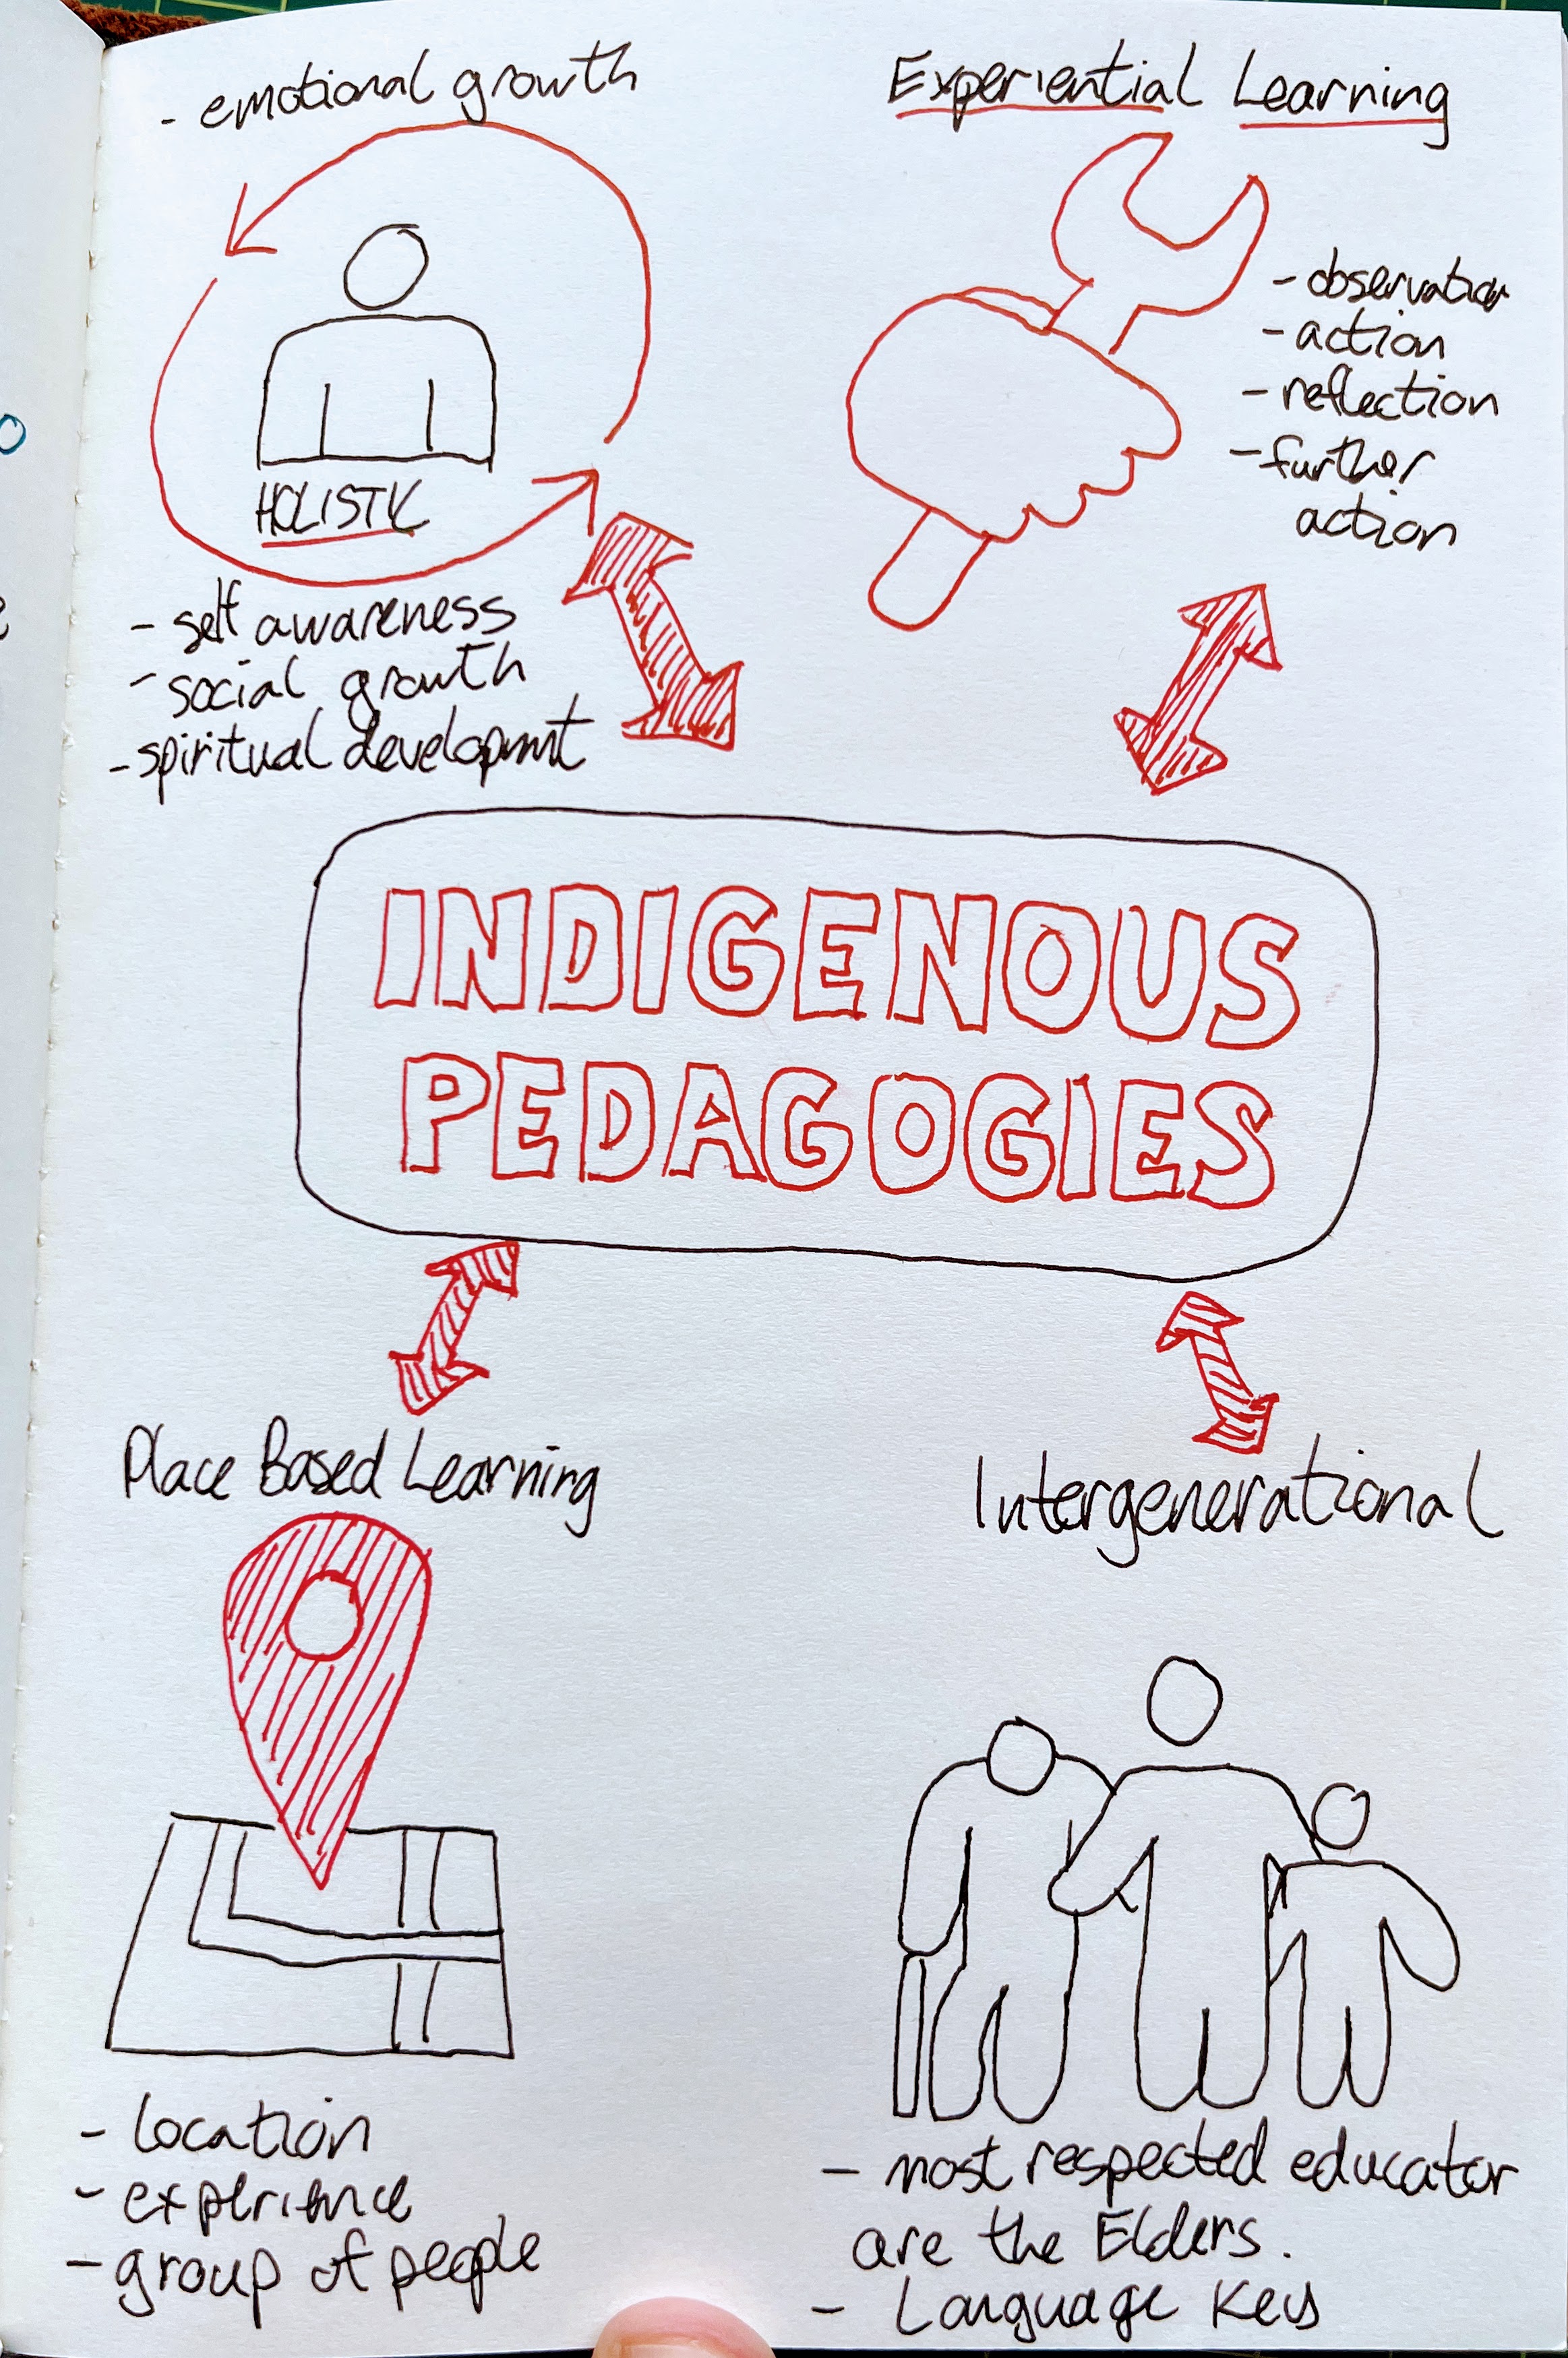 - emotional growth
HOLISTIC
- self awareness
- social growth
- spiritual development
Experiential Learning
- observation
- action
- reflection
- further
action
INDIGENOUS
PEDAGOGIES
Place Based Learning
- location
- experience
- group of people
Intergenerational
- most respected educator
are the Elders.
- Language Key